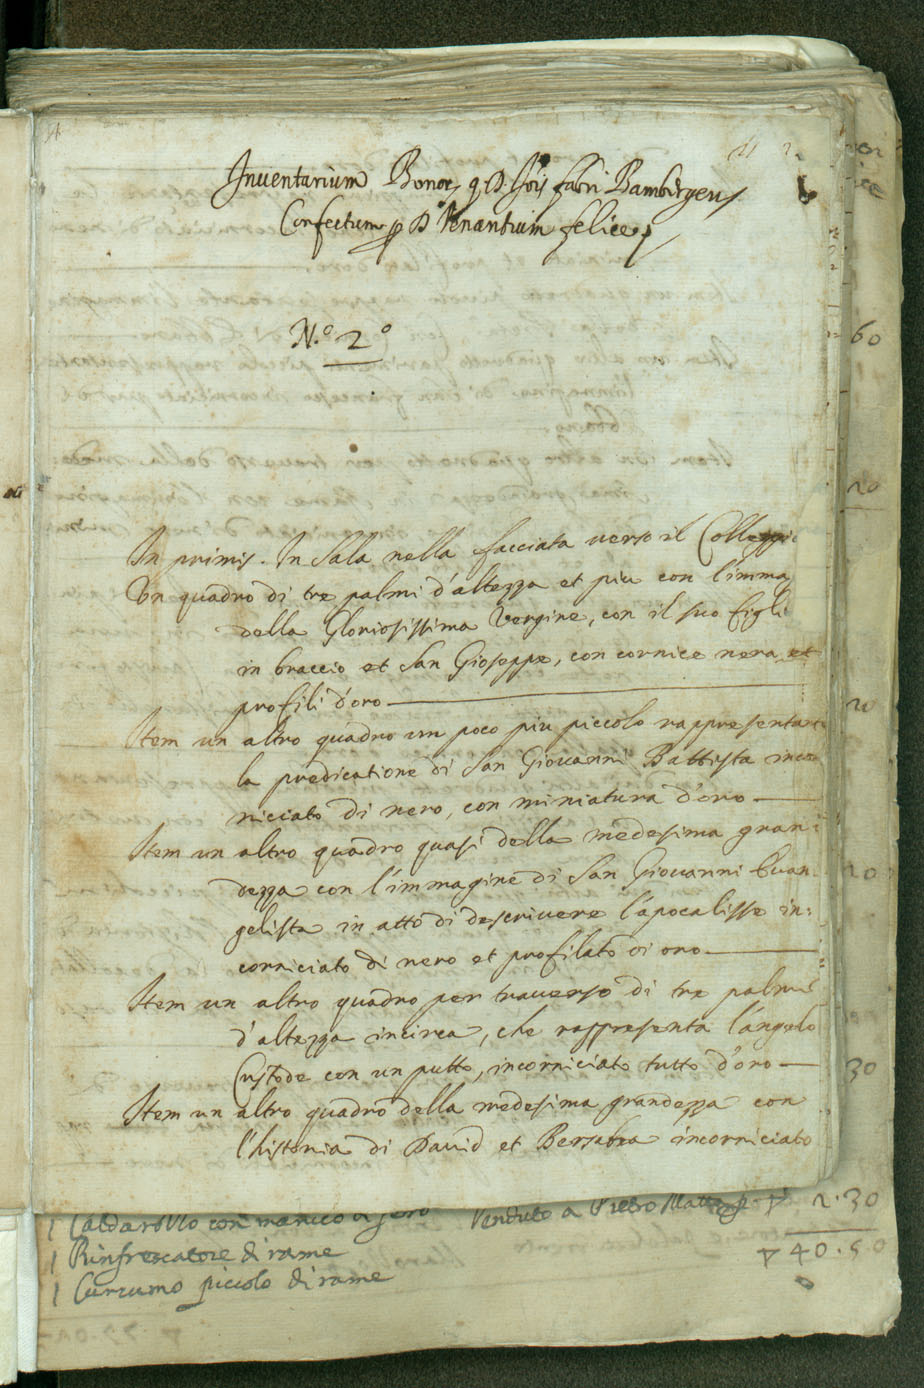 Inventarium Bonor, q. D. Jõis fabri Bambergen,
Confectum p D Venantium felicem
N.º 2º
In primis. In Sala nella facciata verso il Colleggi
Un quadro di tre palmi d'altezza et piu con l'immag
della Gloriosissima Vergine, con il suo figli
in braccio et San Gioseppe, con cornice nera, et
profili d'oro
Item un altro quadro un poco piu piccolo rappresentante
la predicatione di San Giovanni Battista incor
niciato di nero, con miniatura d'oro
Item un altro quadro quasi della medesima gran:
dezza con l'immagine di San Giovanni Evan
gelista in atto di descrivere l'apocalisse in:
corniciato di nero et profilato di oro
Item un altro quadro per traverso di tre palmi
d'altezza incirca, che rappresenta l'angelo
Custode con un putto, incorniciato tutto d'oro
Item un altro quadro della medesima grandezza con
l'historia di David et Bersabea incorniciato
60
20
20
20
30
1 Caldarollo con manico di fero Venduto a Pietro 2.30
1 Rinfrescatore di rame 40.50
1 Curzumo piccolo di rame